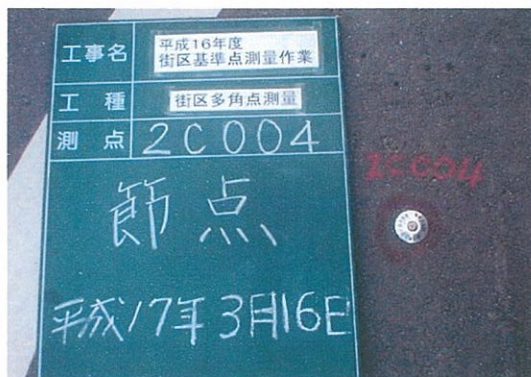 工事名
平成16年度
街区基準点測量作業
工種
街区多角点測量
測点
2C004
節点
平成17年3月16日
2C004